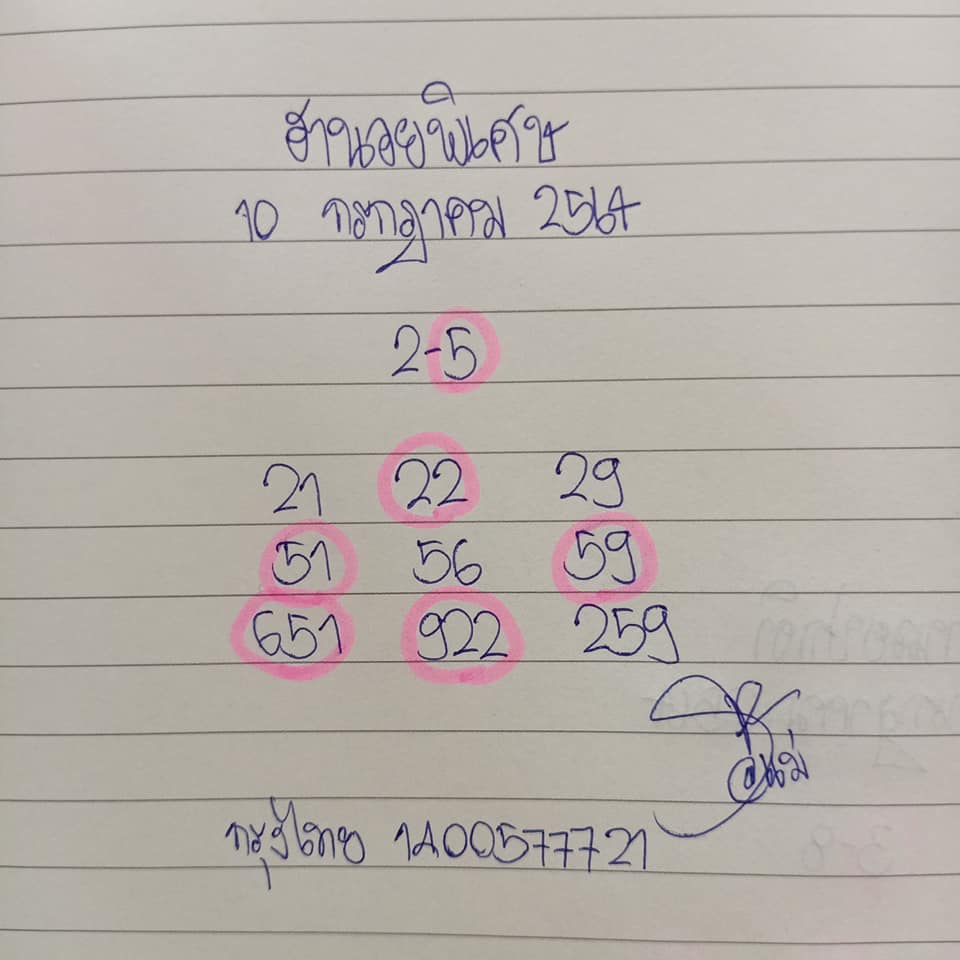 ฮานอยพิเศษ
10 กรกฎาคม 2564
2-5
21 22 29
51 56 59
651 922 259
กรุงไทย 1400577721